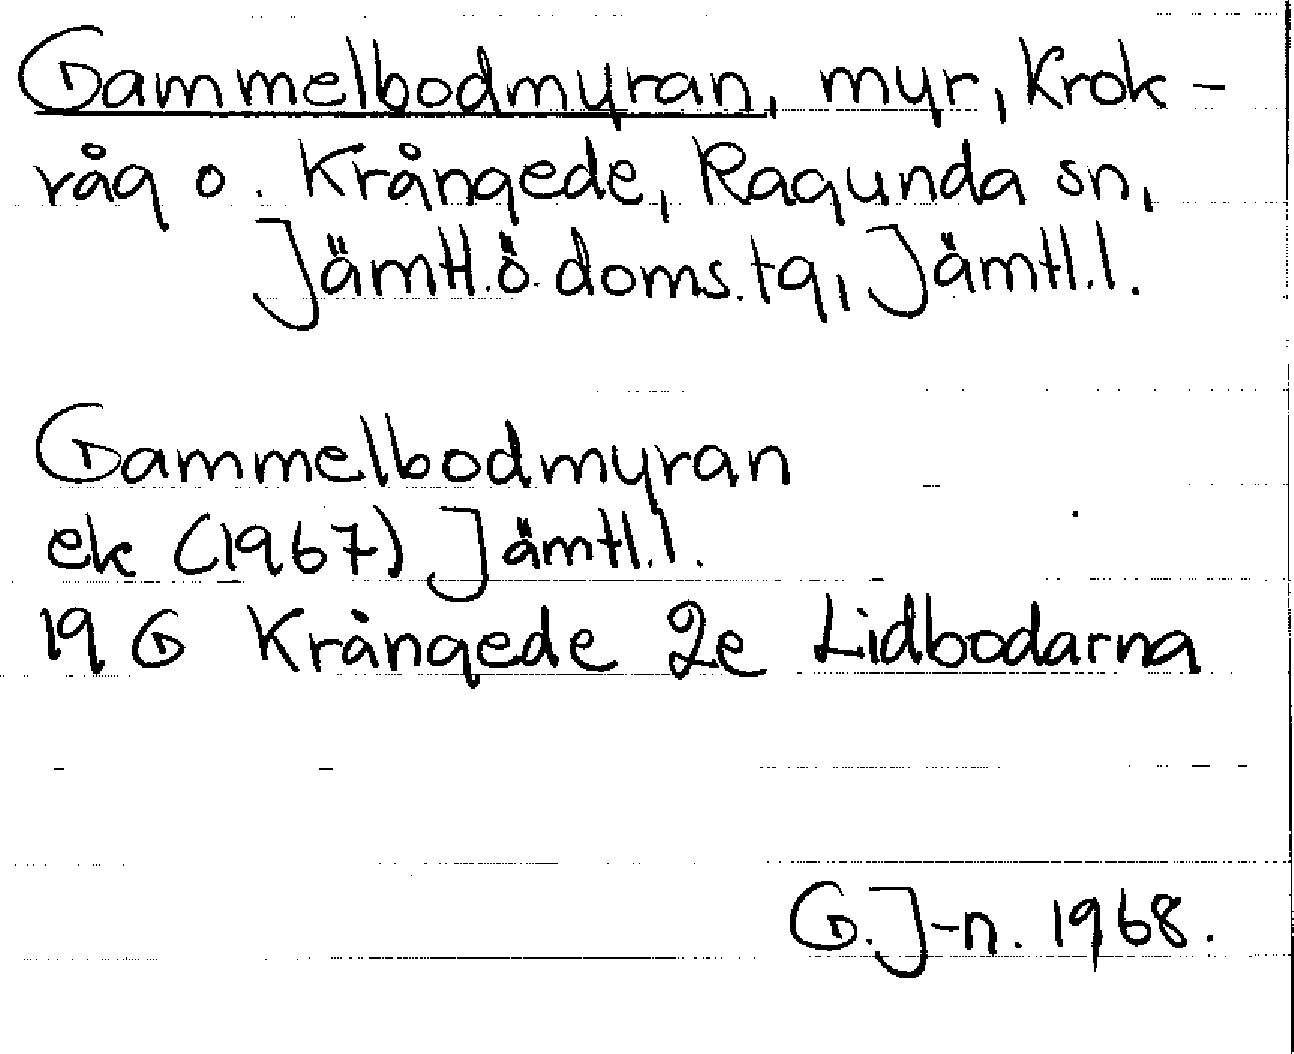 Gammelbodmyran, myr, Krok-
våg o. Krångede, Ragunda sn,
Jämtl.ö. doms.tg, Jämtl.l.
Gammelbodmyran
ek (1967) Jämtl.l.
19 G Krångede 2e Lidbodarna
G.J-n. 1968.